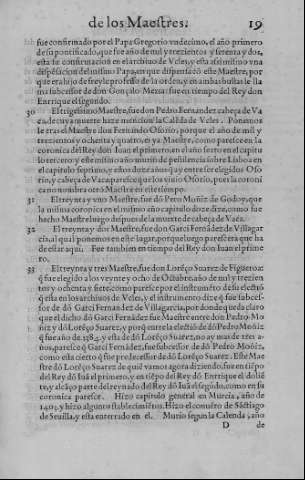 de los Maestres. 19
fue confirmado por el Papa Gregorio vndecimo, el año primero
de su pontificado, que fue año de mil y trezientos y setenta y dos, y
esta la confirmacion en el archiuo de Vcles, y esta assimismo vna
dispensacion del mismo Papa, en que dispensa cō este Maestre, por
que era hijo de freyle professo de la orden, y en ambas bulas le lla
ma subcessor de don Gonçalo Mexia: fue en tiempo del Rey don
Enrrique el segundo.
30 El trigesimo Maestre, fue don Pedro Fernandez cabeça de Va
ca, de cuya muerte haze mencion la Caléda de Vcles. Ponamos
le tras el Maestre don Fernando Osorio, porque el año de mil y
trezientos y ochenta y quatro, en ya Maestre, como parece en la
coronica del Rey don Iuan el primero, en el año sexto en el capitu
lo tercero: y este mismo año murio de pestilencia sobre Lisboa en
el capitulo septimo, y assi duro años que entre ser elegido Oso
rio, y cabeça de Vaca parece que los viuio Osorio, pues la coroni
ca no nombra otro Maestre en este tiempo.
31 El treynta y vno Maestre, fue dō Pero Moñiz de Godoy, que
la misma coronica en el mismo año capitulo doze dize, como fue
hecho Maestre luego despues de la muerte de cabeça de Vaca.
32 El treynta y dos Maestre, fue don Garci Fernādez de Villagar
cia, al qual ponemos en este lugar, porque luego parescera que ha
de estar aqui. Fue tambien en tiempo del Rey don Iuan el prime
ro.
33 El treynta y tres Maestre, fue don Lorēço Suarez de Figueroa:
q̄ fue elegido a los veynte y ocho de Octubre, año de mil y trezien
tos y ochenta y siete, como parece por el instrumēto de su electiō
q̄ esta en los archiuos de Vcles, y el instrumento dize q̄ fue subces-
sor de dō Garci Fernandez de Villagarcia, por donde queda claro
que el dicho dō Garci Fernādez fue Maestre entre don Pedro Mo
ñiz y dō Lorēço Suarez, y porq̄ entre la electiō de dō Pedro Moñiz
q̄ fue año de .1385. y esta de dō Lorēço Suarez, no ay mas de tres a-
ños, parece q̄ Garci Fernādez, fue subcessor de dō Pedro Moñiz,
como esta cierto q̄ fue predecessor de dō Lorēço Suarez. Este Mae
stre dō Lorēço Suarez de quiē vamos agora diziendo, fue en tiēpo
del Rey dō Iuā el primero, y en tiēpo del Rey dō Enrrique el dolié
te, y alcāço parte del reynado del Rey dō Iuā el segūdo, como en su
coronica paresce. Hizo capitulo general en Murcia, año de
1403. y hizo algunos stablecimiētos. Hizo el conuēto de Sātiago
de Seuilla, y esta enterrado en el. Murio segun la Calenda, año
D de